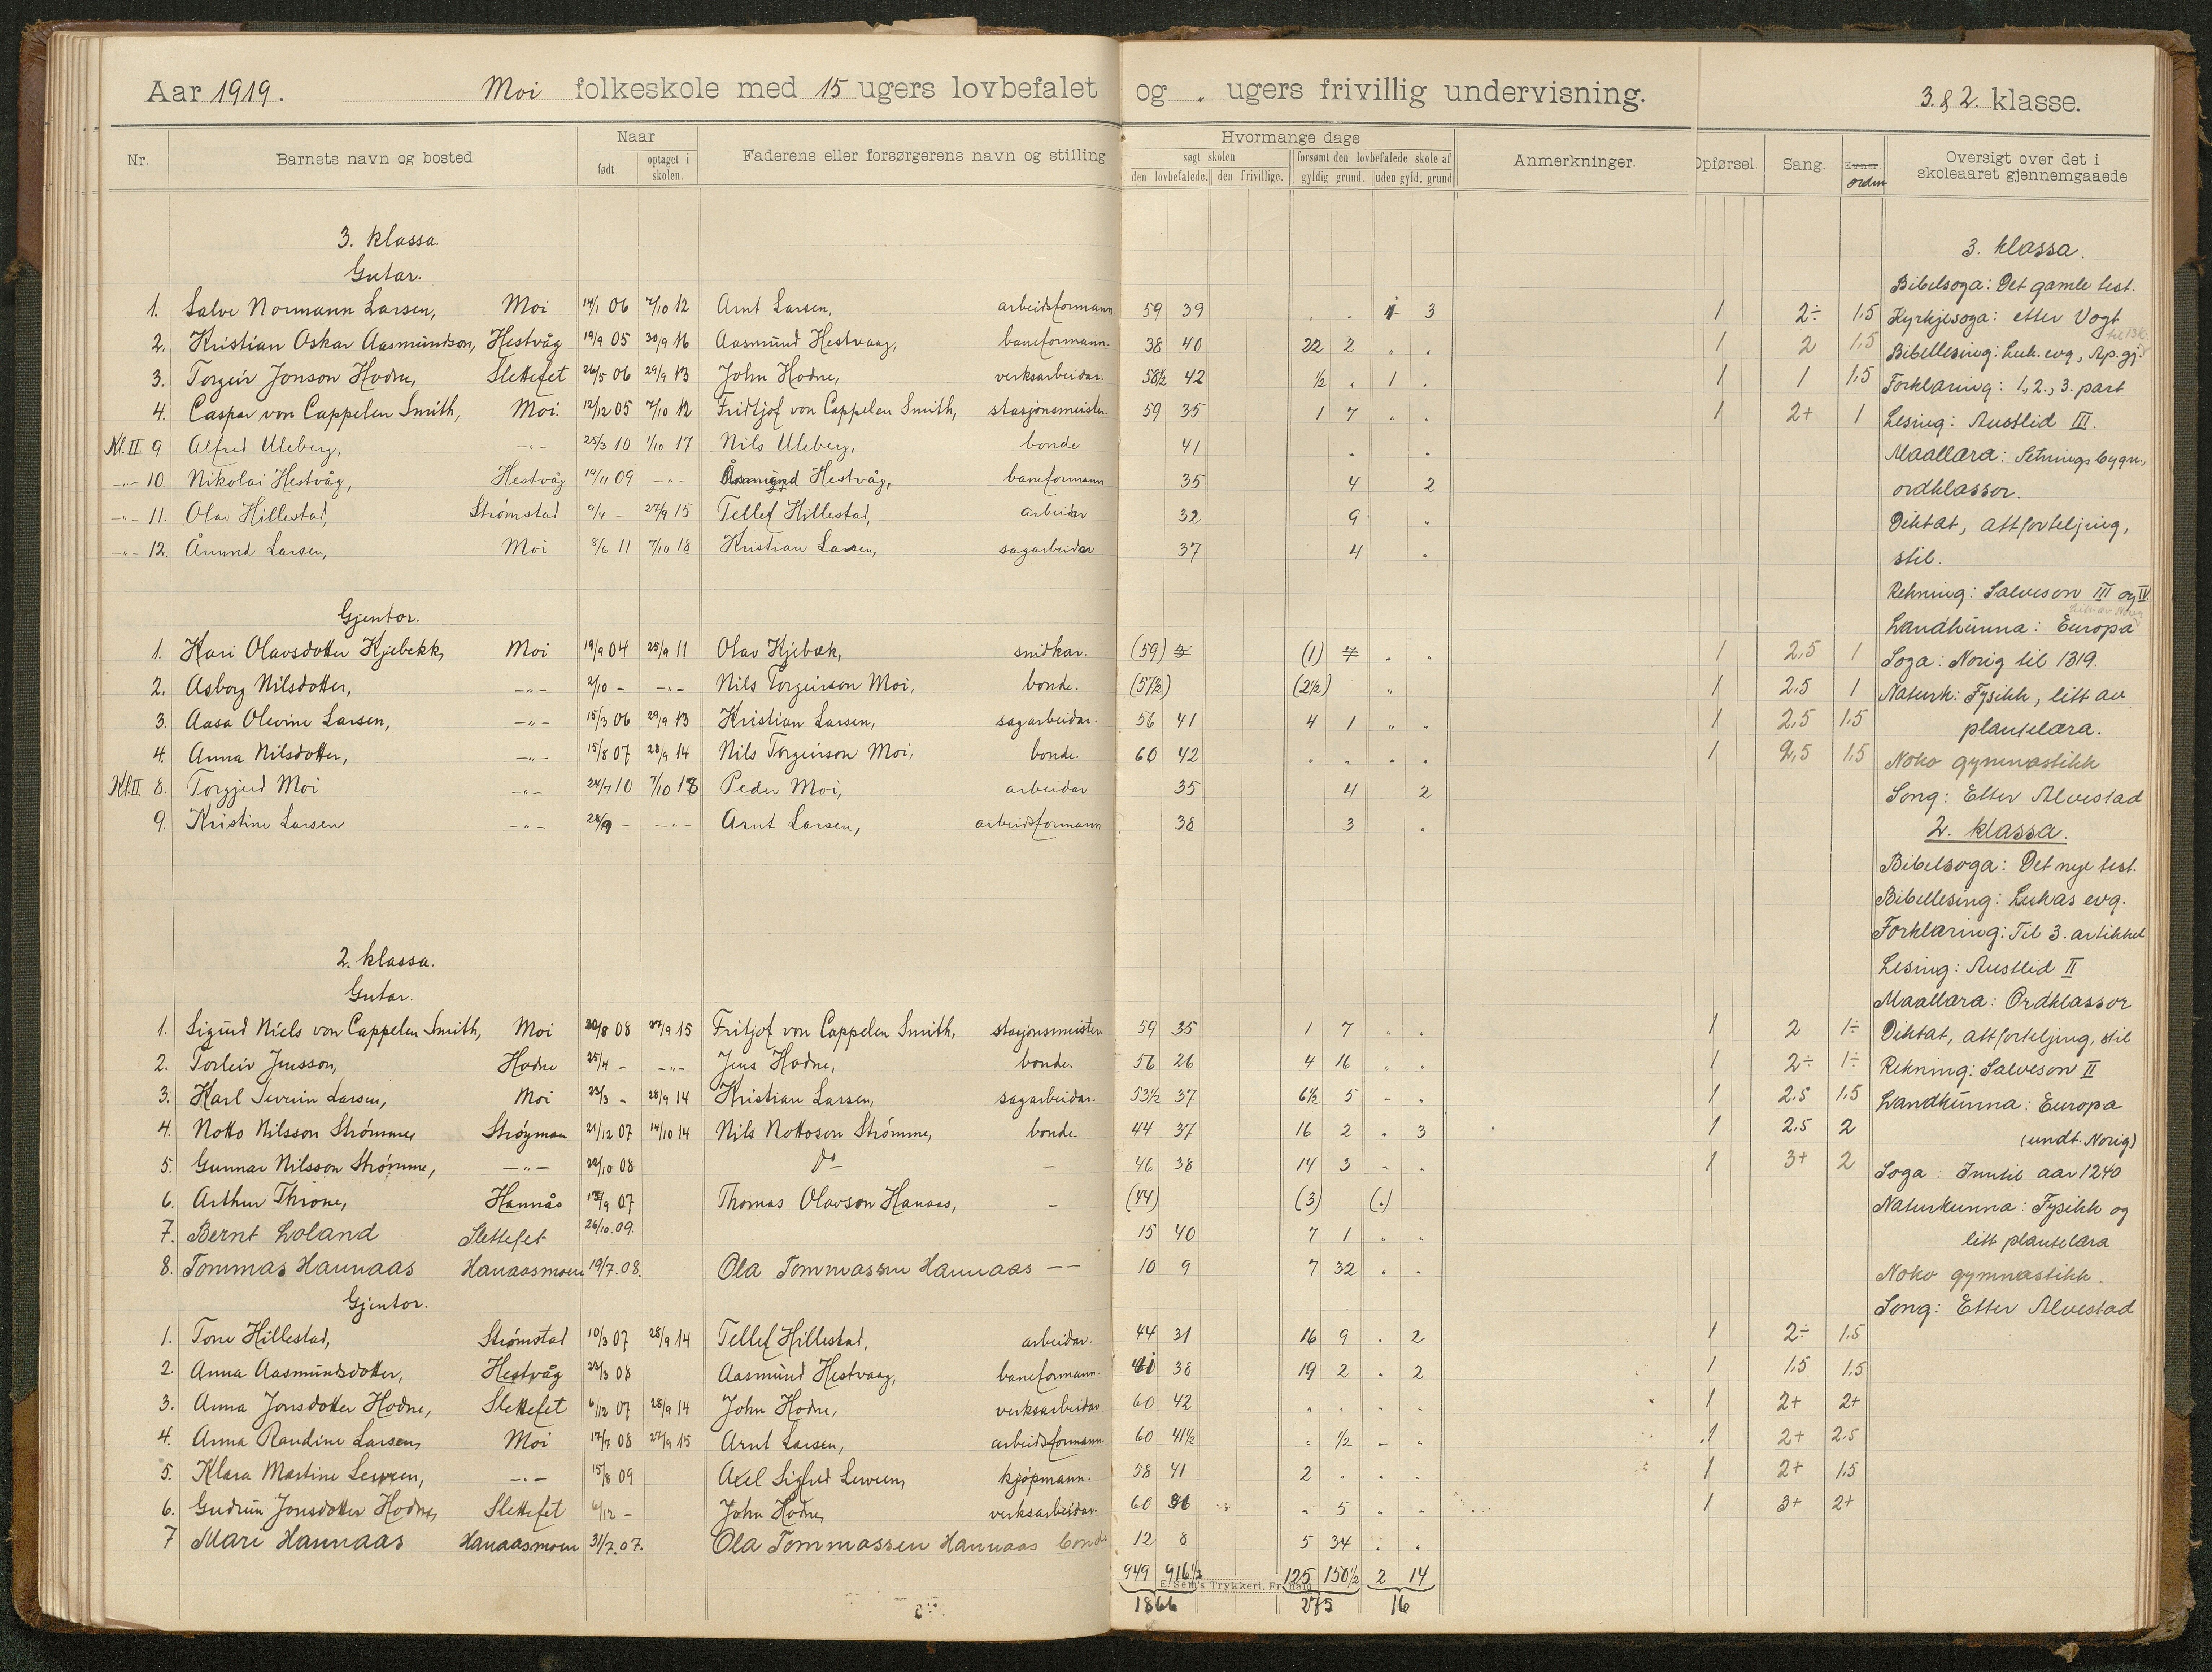 Aar 1919. Moi folkeskole med 15 ugers lovbefalet og „ ugers frivillig undervisning. 3. & 2. klasse.
Nr. Barnets navn og bosted Naar født optaget i skolen. Faderens eller forsørgerens navn og stilling Hvormange dage søgt skolen den lovbefalede. den frivillige. forsømt den lovbefalede skole af gyldig grund. uden gyld. grund Anmerkninger. Opførsel. Sang. Evner orden Oversigt over det i skoleaaret gjennemgaaede
3. klassa.
Gutar.
1. Salve Normann Larsen, Moi 14/1 06 7/10 12 Arnt Larsen, arbeidsformann 59 39 . . 1 3 1 2÷ 1,5
2. Kristian Oskar Aasmundson, Hestvåg 19/9 05 30/9 16 Aasmund Hestvaag, baneformann. 38 40 22 2 „ . 1 2 1,5
3. Torgeir Jonson Hodne, Slettefet 26/5 06 29/9 13 John Hodne, verksarbeidar. 58½ 42 ½ . 1 . 1 1 1,5
4. Caspar von Cappelen Smith, Moi. 12/12 05 7/10 12 Fridtjof von Cappelen Smith, stasjonsmeister. 59 35 1 7 „ . 1 2+ 1
Kl. II. 9 Alfred Uleberg, -„- 25/3 10 1/10 17 Nils Uleberg, bonde 41 . .
-„- 10. Nikolai Hestvåg, Hestvåg 19/11 09 -„- Åsmund Hestvåg, baneformann 35 4 2
-„- 11. Olav Hillestad, Strømstad 9/4 - 27/9 15 Tellef Hillestad, arbeidar 32 9 „
-„- 12. Ånund Larsen, Moi 8/6 11 7/10 18 Kristian Larsen, sagarbeidar 37 4 .
Gjentor.
1. Kari Olavsdotter Kjebekk, Moi 19/9 04 25/9 11 Olav Kjebæk, snidkar. (59) (1) „ . 1 2,5 1
2. Asborg Nilsdotter, -„- 2/10 - -„- Nils Torgeirson Moi, bonde. (57½) (2½) „ 1 2,5 1
3. Aasa Olevine Larsen, -„- 15/3 06 29/9 13 Kristian Larsen, sagarbeidar. 56 41 4 1 „ „ 1 2,5 1,5
4. Anna Nilsdotter, -„- 15/8 07 28/9 14 Nils Torgeirson Moi, bonde. 60 42 „ . . . 1 2,5 1,5
Kl. II 8. Torgjerd Moi -„- 24/7 10 7/10 18 Peder Moi, arbeidar 35 4 2
9. Kristine Larsen -„- 28/9 - -„- Arnt Larsen, arbeidsformann 38 3 .
2. klassa.
Gutar.
1. Sigurd Niels von Cappelen Smith, Moi 20/8 08 27/9 15 Fritjof von Cappelen Smith, stasjonsmeister 59 35 1 7 „ . 1 2 1÷
2. Torleiv Jensson, Hodne 25/4 - -„- Jens Hodne, bonde. 56 26 4 16 „ . 1 2÷ 1÷
3. Karl Severin Larsen, Moi 23/3 - 28/9 14 Kristian Larsen, sagarbeidar. 53½ 37 6½ 5 „ „ 1 2,5 1,5
4. Notto Nilsson Strømme, Strøymen 21/12 07 14/10 14 Nils Nottoson Strømme, bonde. 44 37 16 2 . 3 1 2,5 2
5. Gunnar Nilsson Strømme, -„- 22/10 08 Do - 46 38 14 3 . . 1 3+ 2
6. Arthur Throne, Hannås 13/9 07 Thomas Olavson Hanaas, - (44) (3) (.)
7. Bernt Loland Slettefet 26/10.09. 15 40 7 1 . .
8. Tommas Hannaas Hanaasmoen 19/7.08. Ola Tommassen Hannaas -- 10 9 7 32 . .
Gjentor.
1. Tone Hillestad, Strømstad 10/3 07 28/9 14 Tellef Hillestad, arbeidar. 44 31 16 9 . 2 1 2÷ 1,5
2. Anna Aasmundsdotter, Hestvåg 22/3 08 Aasmund Hestvaag, baneformann. 41 38 19 2 . 2 1 1,5 1,5
3. Anna Jonsdotter Hodne, Slettefet 6/12 07 28/9 14 John Hodne, verksarbeidar 60 42 „ . . . 1 2+ 2+
4. Anna Randine Larsen, Moi 17/7 08 27/9 15 Arnt Larsen, arbeidsformann 60 41½ „ ½ - „ 1 2+ 2,5
5. Klara Martine -„- 15/8 09 Axel Sigfred kjøpmann. 58 41 2 . . . 1 2+ 1,5
6. Gudrun Jonsdotter Hodne, Slettefet 6/12 - John Hodne, verksarbeidar. 60 36 „ 5 „ . 1 3+ 2+
7 Mari Hannaas Hanaasmoen 31/7.07. Ola Tommassen Hannaas bonde 12 8 5 34 . .
949 916½ 125 150½ 2 14
E. Sem's Trykkeri, Fr.hald
1866 275 16
3. klassa.
Bibelsoga: Det gamle test.
Kyrkjesoga: etter Vogt
Bibellesing: Luk. evg, Ap. gj.
Forklaring: 1., 2., 3. part
Lesing: Austlid III.
Maallæra: Setningsbygn.,
ordklassor.
Diktat, attforteljing,
stil.
Rekning: Salveson III og IV.
Landkunna: Europa
Soga: Norig til 1319.
Naturk: Fysikk, litt av
plantelæra.
Noko gymnastikk
Song: Etter Alvestad
2. klassa.
Bibelsoga: Det nye test.
Bibellesing: Lukas evg.
Forklaring: Til 3. artikkel
Lesing: Austlid II
Maallæra: Ordklassor
Diktat, attforteljing, stil
Rekning: Salveson II
Landkunna: Europa
(undt. Norig)
Soga: Inntil aar 1240
Naturkunna: Fysikk og
litt plantelæra
Noko gymnastikk.
Song: Etter Alvestad